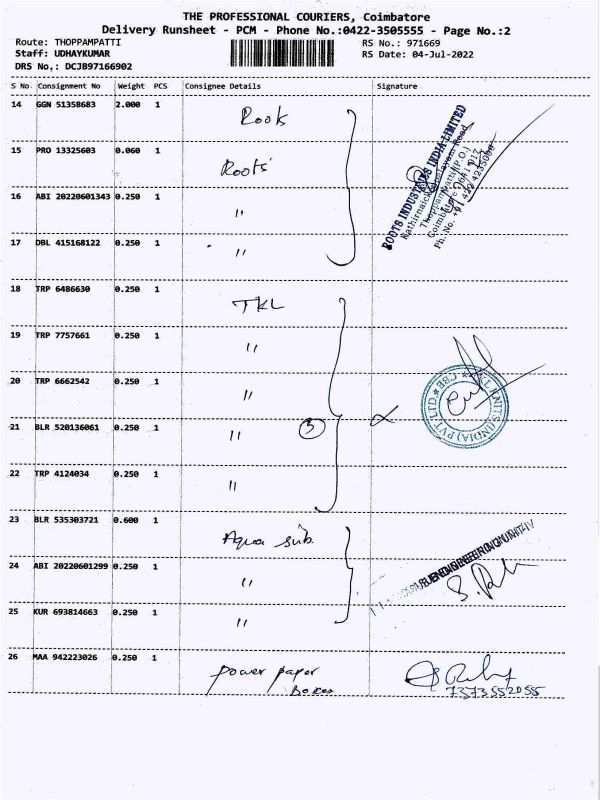 THE PROFESSIONAL COURIERS, Coimbatore
Delivery Runsheet - PCM - Phone No.:0422-3505555 - Page No.:2
Route: THOPPAMPATTI RS No.: 971669
Staff: UDHAYKUMAR RS Date: 04-Jul-2022
DRS No.: DCJB97166902
S No Consignment No Weight PCS Consignee Details Signature
14 GGN 51358683 2.000 1 Roots
15 PRO 13325603 0.060 1 Roots
16 ABI 20220601343 0.250 1 "
17 DBL 415168122 0.250 1 "
ROOTS INDUSTRIES INDIA LIMITED
Thoppampatti (P.O.)
Coimbatore
18 TRP 6486630 0.250 1 TKL
19 TRP 7757661 0.250 1 "
20 TRP 6662542 0.250 1 "
21 BLR 520136061 0.250 1 " 3
22 TRP 4124034 0.250 1 "
(INDIA) PVT LTD
CBE
23 BLR 535303721 0.600 1 Aqua sub
24 ABI 20220601299 0.250 1 "
25 KUR 693814663 0.250 1 "
26 MAA 942223026 0.250 1 power paper
boxes
7373552055